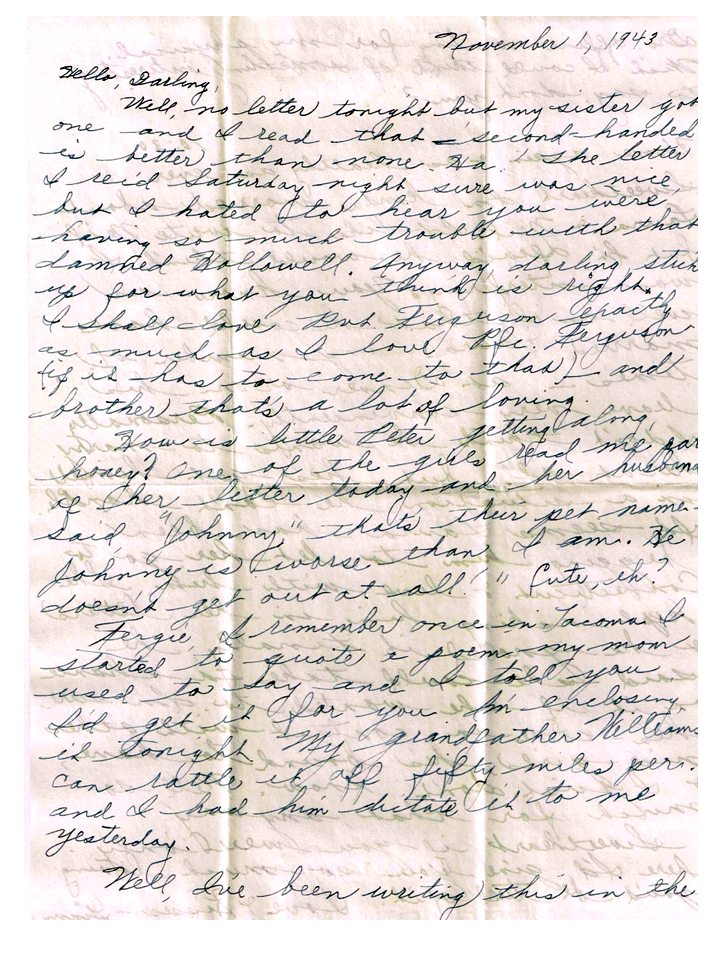 November 1, 1943
Hello, Darling,
Well, no letter tonight but my sister got
one and I read that – second-handed
is better than none. Ha! The letter
I rec'd Saturday night sure was nice,
but I hated to hear you were
having so much trouble with that
damned Hollowell. Anyway, darling stick
up for what you think is right.
I shall love Pvt. Ferguson exactly
as much as I love Pfc. Ferguson
(if it has to come to that) – and
brother that's a lot of loving.
How is little Peter getting along,
honey? One of the girls read me par
of her letter today and her husband
said, "Johnny" that's their pet name –
Johnny is worse than I am. He
doesn't get out at all!" Cute, eh?
Fergie, I remember once in Tacoma I
started to quote a poem my mom
used to say and I told you
I'd get it for you. Im enclosing
it tonight. My grandfather Williams
can rattle it off fifty miles per.
and I had him dictate it to me
yesterday.
Well, I've been writing this in the